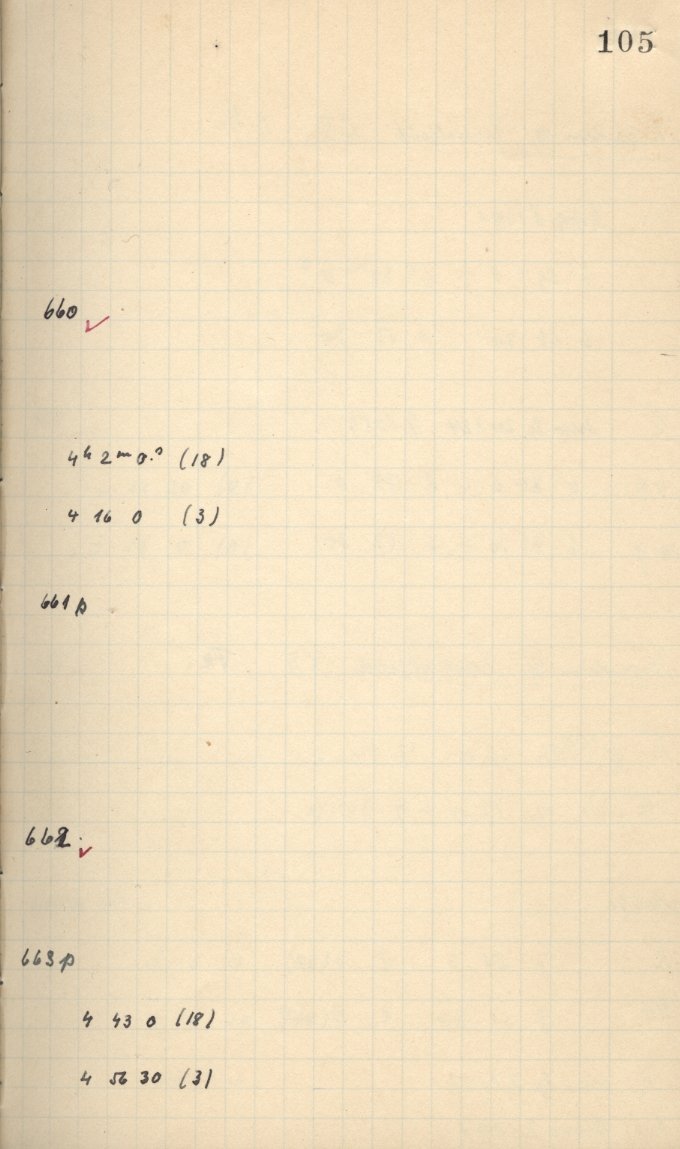 105
660 ✓
4ʰ 2ᵐ 0.ˢ (18)
4 16 0 (3)
661 p
662 ✓
663 p
4 43 0 (18)
4 56 30 (3)